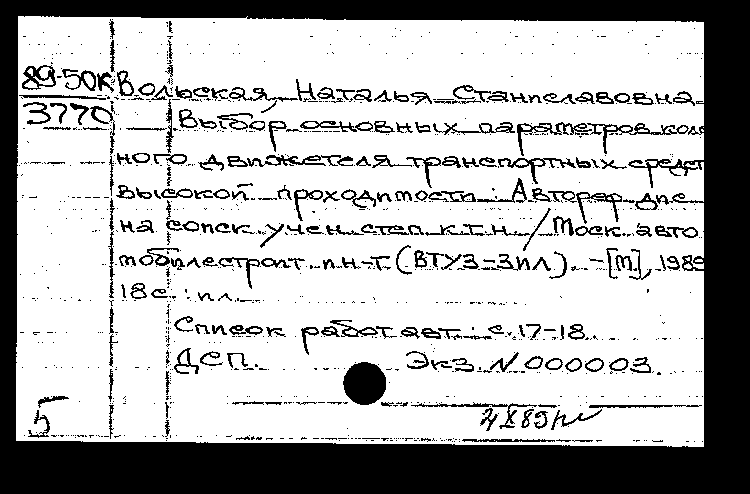 89-50К Вольская, Наталья Станиславовна
3770 Выбор основных параметров коле
ного движетеля транспортных средст
высокой проходимости : Автореф. дис.
на соиск. учен. степ. к.т.н. / Моск. авто
мобилестроит. ин-т (ВТУЗ-Зил). - [М], 1989
18 с. : ил.
Список работ авт.: с. 17-18.
ДСП. Экз. N 000003.
5